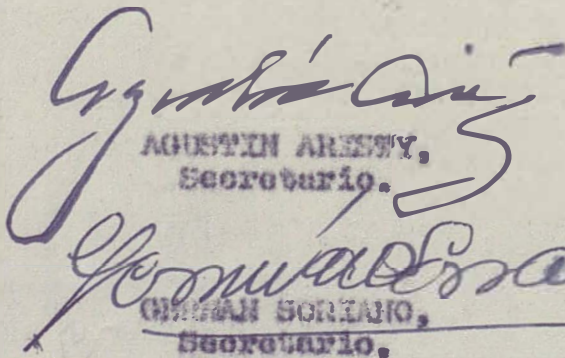 AGUSTIN ARISTY,
Secretario.
GERMAN SORIANO,
Secretario.